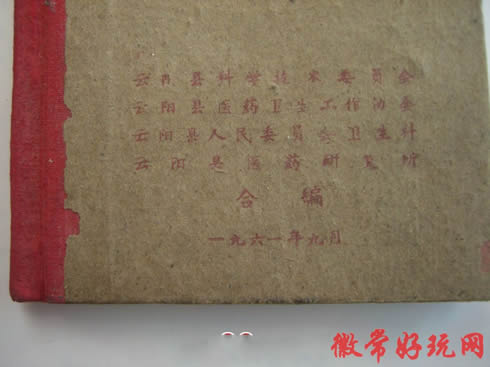 云阳县科学技术委员会
云阳县医药卫生工作协会
云阳县人民委员会卫生科
云阳县医药研究所
合编
一九六一年九月
徽常好玩网